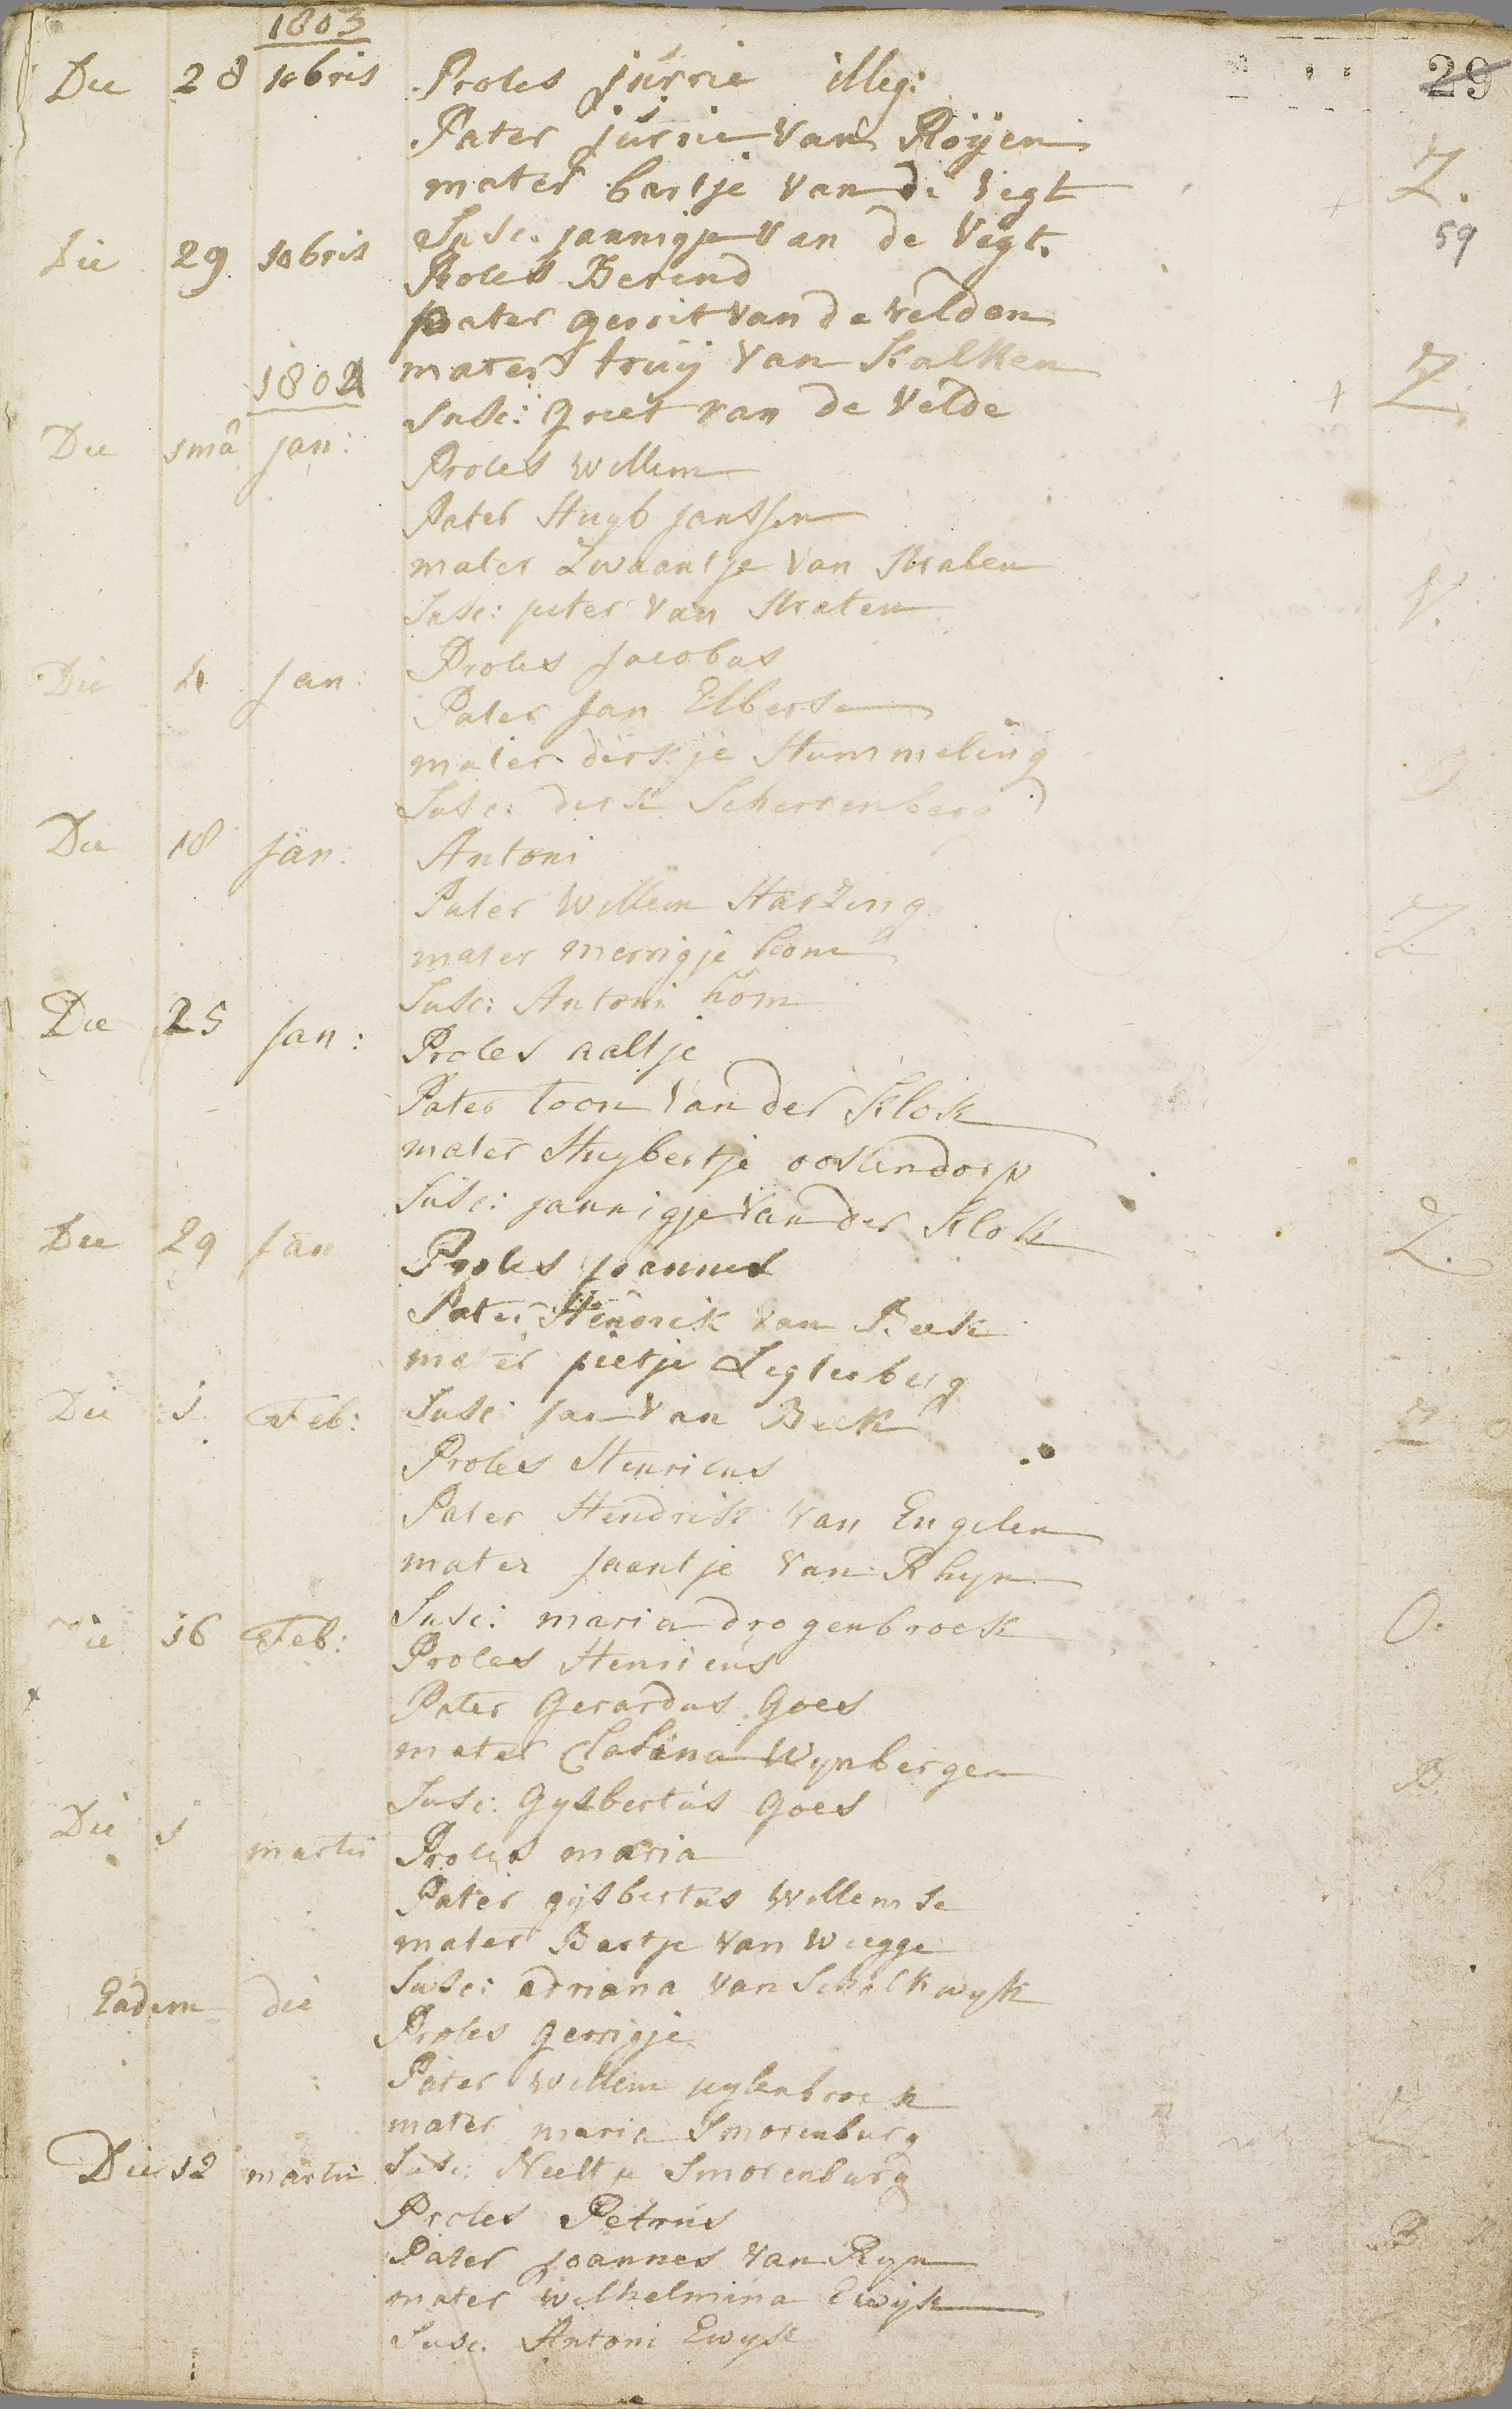 1803
29
Die 28 10bris Proles jurrie illeg:
Pater jurrie van Roÿen
mater bartje van de Vegt Z.
Susc. jannigje van de Vegt. 59
Die 29 10bris Proles Berend
pater gerrit van de velden
mater truij van Kalken Z.
1804
Susc: griet van de Velde
Die 1mâ jan: Proles willem
Pater Huyb janssen
mater Zwaantje van Straten
Susc: peter van Straten V.
Die 4 Jan: Proles Jacobus
Pater Jan Elberse
mater dirkje Hummeling
Susc: derk Scherrenberg
Die 18 Jan: Antoni
Pater Willem Harzing
mater merrigje hom Z
Susc: Antoni hom
Die 25 Jan: Proles aaltje
Pater toon van der Klok
mater Huybertje oostendorp
Susc: jannigje van der Klok
Die 29 Jan Proles joannes Z.
Pater Hendrik van Beek
mater pietje Legterberg
Die 1 Feb: Susc: jan van Beek
Proles Henricus
Pater Hendrik van Engelen
mater jaantje van Rhyn
Susc: maria drogenbroek O.
Die 16 Feb: Proles Henricus
Pater Gerardus Goes
mater Clasina Wynbergen B.
Susc: Gysbertus Goes
Die 1 martii Proles maria
Pater gijsbertus Willemse B.
mater Bartje van Wiegge
Susc: adriana van Schalkwyk
Eadem die Proles gerrigje
Pater Willem pylenbroek
mater maria Smorenburg Z
Die 12 martii Susc: Neeltje Smorenburg
Proles Petrus
Pater joannes van Ryn B.
mater wilhelmina Ewijk
Susc. Antoni Ewyk